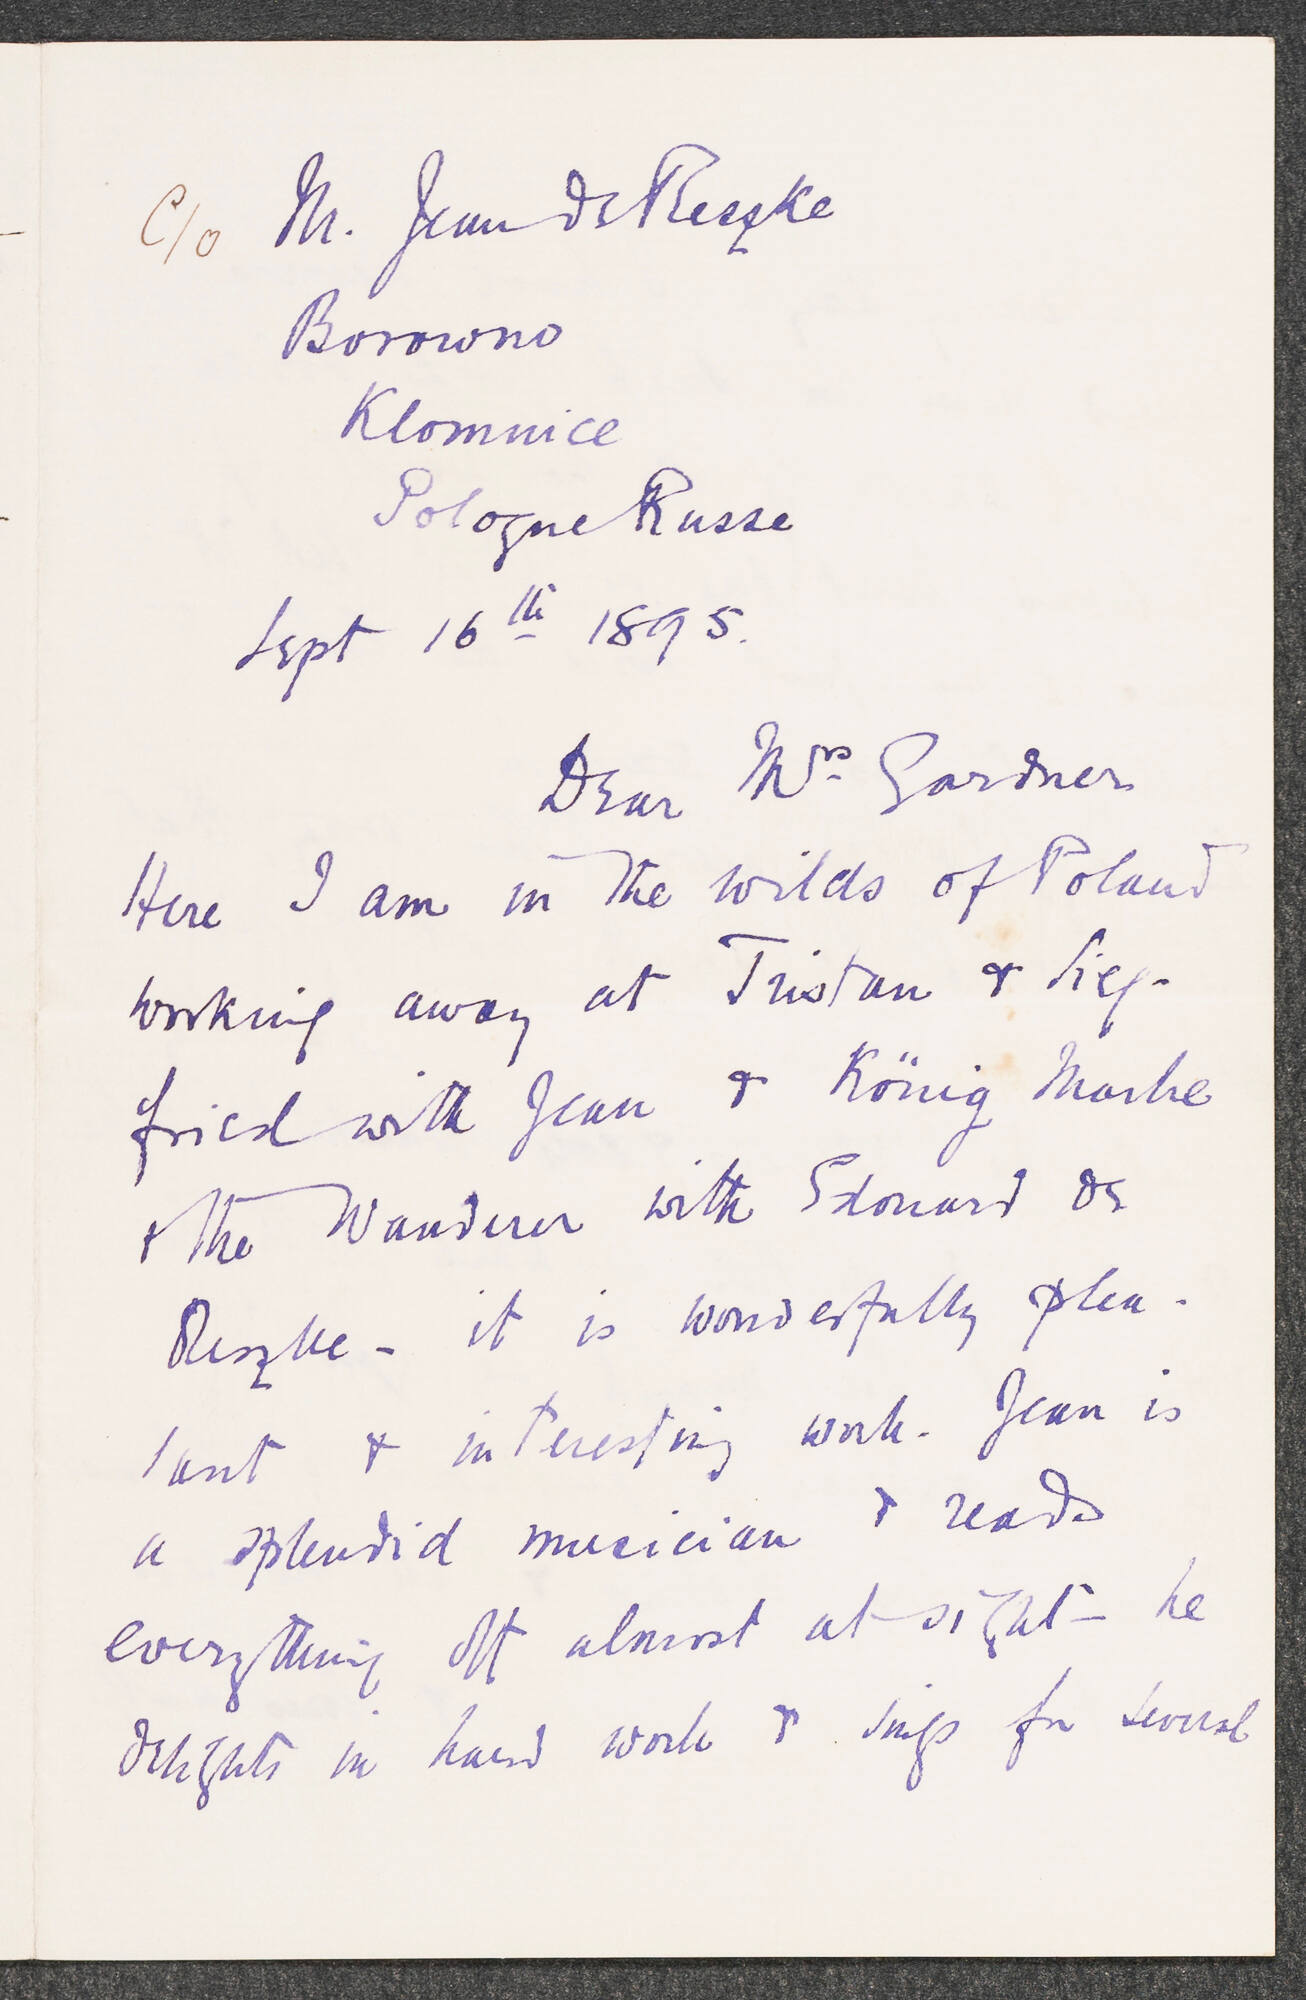 C/o M. Jean de Reszke
Borowno
Klomnice
Pologne Russe
Sept 16th 1895.
Dear Mrs Gardner
Here I am in the wilds of Poland
working away at Tristan & Sieg-
fried with Jean & König Marke
& the Wanderer with Edouard de
Reszke - it is wonderfully plea-
sant & interesting work. Jean is
a splendid musician & reads
everything off almost at sight - he
delights in hard work & sings for several